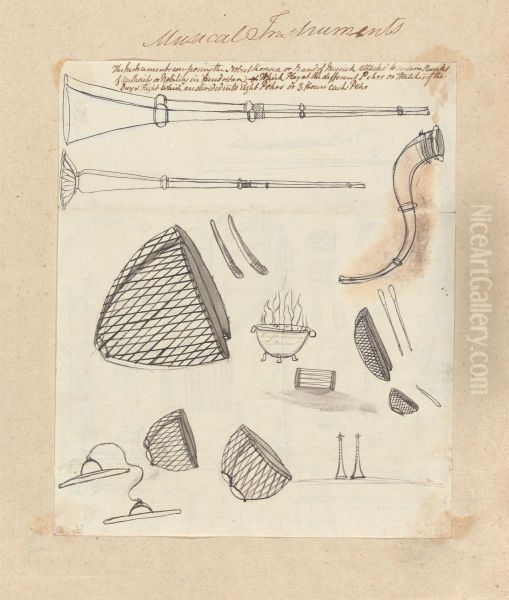 Musical Instruments
The Instruments composing the Nobut Konna or Band of Musick attach'd to certain Ranks
of Authority or Nobility in Hindostan, Which Play at the different Pehrs or Watches of the
Day & Night which are divided into Eight Pehrs or 3 Hours each Pehr
NiceArtGallery.com